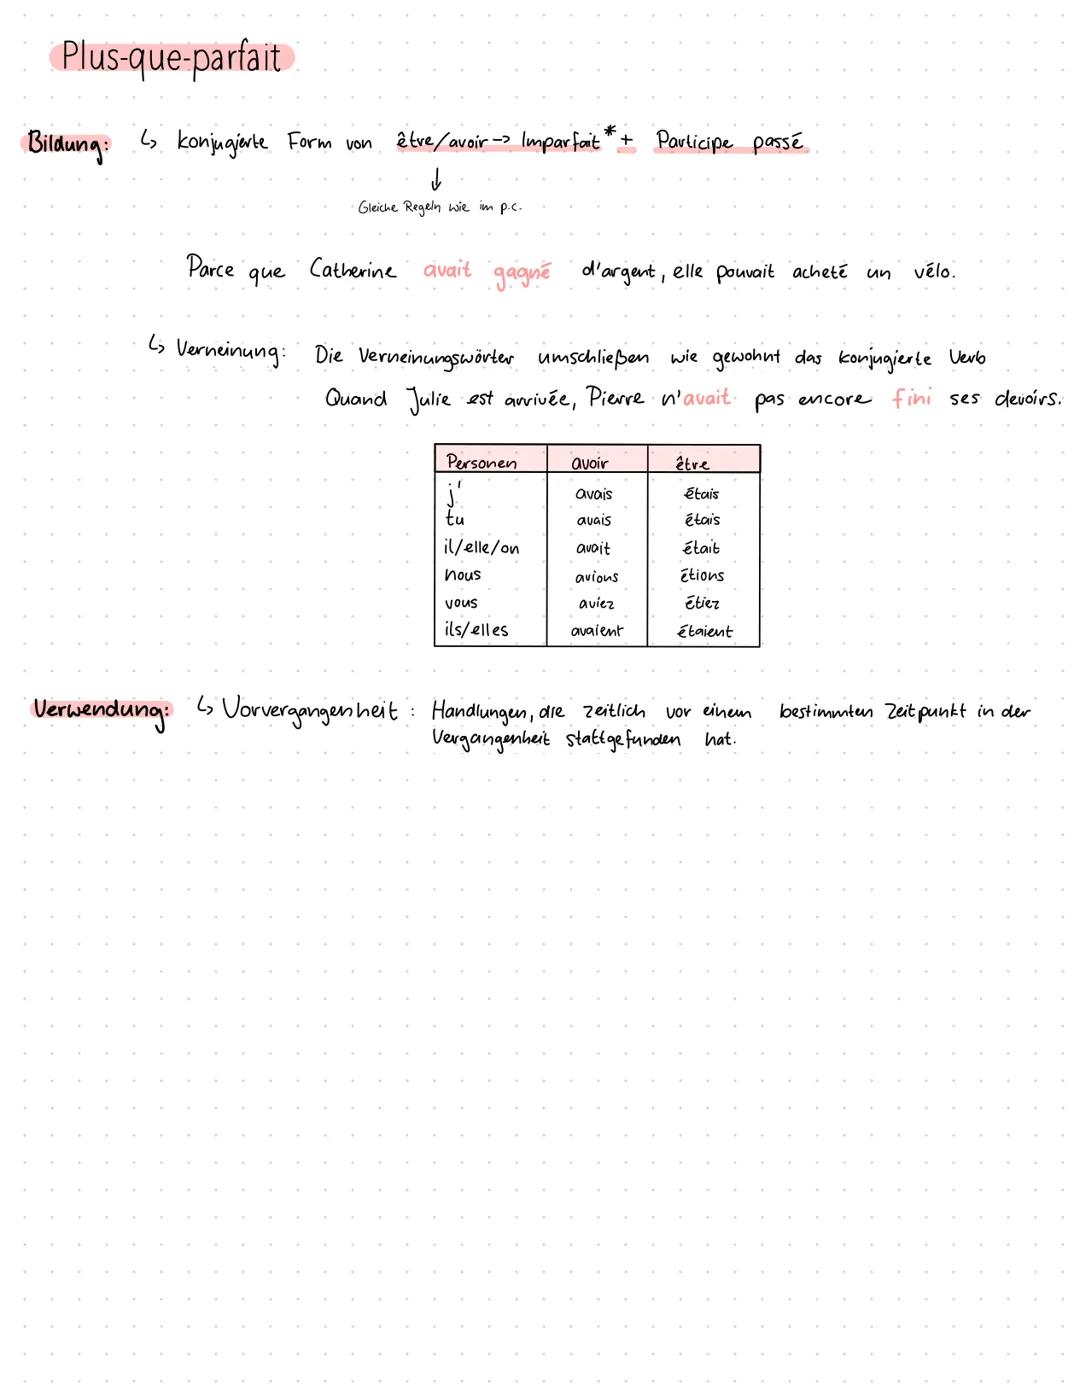 Plus-que-parfait
Bildung: ↳ konjugierte Form von être/avoir → Imparfait* + Participe passé
↓
Gleiche Regeln wie im p.c.
Parce que Catherine avait gagné d'argent, elle pouvait acheté un vélo.
↳ Verneinung: Die Verneinungswörter umschließen wie gewohnt das konjugierte Verb
Quand Julie est arrivée, Pierre n'avait pas encore fini ses devoirs.
Personen avoir être
j' avais étais
tu avais étais
il/elle/on avait était
nous avions étions
vous aviez étiez
ils/elles avaient étaient
Verwendung: ↳ Vorvergangenheit: Handlungen, die zeitlich vor einem bestimmten Zeitpunkt in der
Vergangenheit stattgefunden hat.